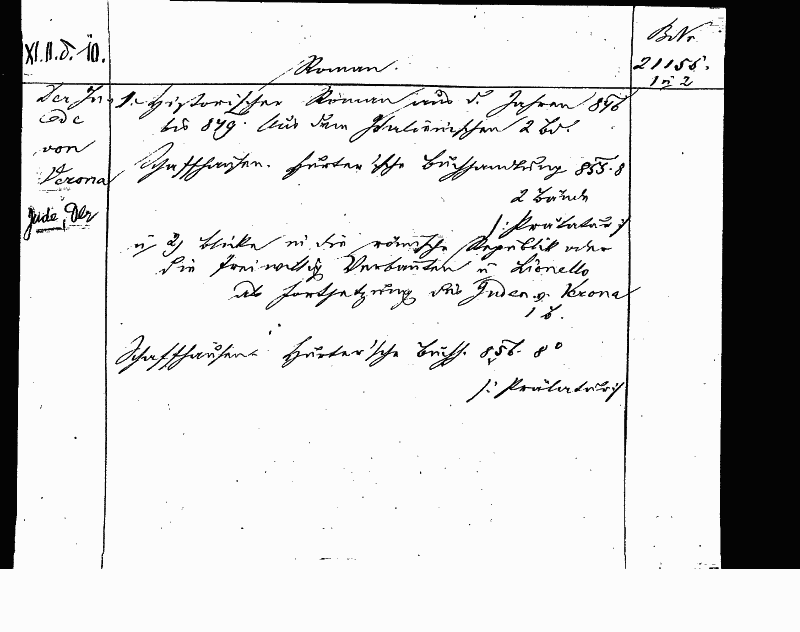 XI.II.d.10.
Roman.
B.Nr.
21155.
1 u 2
Der Ju-
ede
von
Verona
Jude, Der
1. Historischer Roman aus d. Jahren 846
bis 849. Aus dem Italienischen 2 Bd.
Schaffhausen. Hurter'sche Buchhandlung 855. 8
2 Bände
/: Prälatur :/
u 2) Blicke in die römische Republik oder
die freiwillig Verbannten u Lionello
als Fortsetzung des Juden v. Verona
1 B.
Schaffhausen Hurter'sche Buchh. 856. 8°
/: Prälatur :/